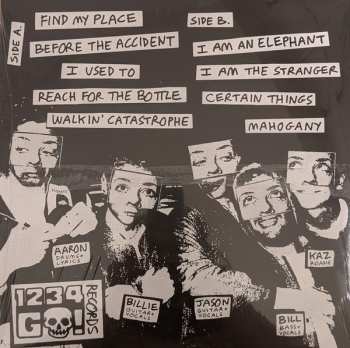 SIDE A.
FIND MY PLACE
BEFORE THE ACCIDENT
I USED TO
REACH FOR THE BOTTLE
WALKIN' CATASTROPHE
SIDE B.
I AM AN ELEPHANT
I AM THE STRANGER
CERTAIN THINGS
MAHOGANY
AARON
DRUMS+
LYRICS
BILLIE
GUITAR+
VOCALS
JASON
GUITAR+
VOCALS
BILL
BASS+
VOCALS
KAZ
ROADIE
1234
GO!
RECORDS